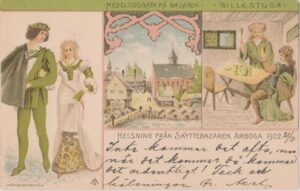 MEDELTIDSGATA PÅ BASAREN.
GILLESTUGA.
HELSNING FRÅN SKYTTEBAZAREN, ARBOGA 1902
Inte kommer det ofta, men
när det kommer så kommer
det ordentligt! Tack och
helsningar fr.